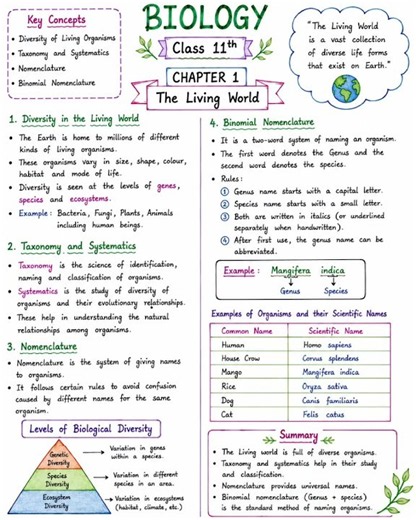 BIOLOGY
Class 11th
CHAPTER 1
The Living World
Key Concepts
• Diversity of Living Organisms
• Taxonomy and Systematics
• Nomenclature
• Binomial Nomenclature
"The Living World
is a vast collection
of diverse life forms
that exist on Earth."
1. Diversity in the Living World
• The Earth is home to millions of different
kinds of living organisms.
• These organisms vary in size, shape, colour,
habitat and mode of life.
• Diversity is seen at the levels of genes,
species and ecosystems.
• Example: Bacteria, Fungi, Plants, Animals
including human beings.
2. Taxonomy and Systematics
• Taxonomy is the science of identification,
naming and classification of organisms.
• Systematics is the study of diversity of
organisms and their evolutionary relationships.
• These help in understanding the natural
relationships among organisms.
3. Nomenclature
• Nomenclature is the system of giving names
to organisms.
• It follows certain rules to avoid confusion
caused by different names for the same
organism.
Levels of Biological Diversity
Genetic
Diversity
Variation in genes
within a species.
Species
Diversity
Variation in different
species in an area.
Ecosystem
Diversity
Variation in ecosystems
(habitat, climate, etc.)
4. Binomial Nomenclature
• It is a two-word system of naming an organism.
• The first word denotes the Genus and the
second word denotes the species.
• Rules:
① Genus name starts with a capital letter.
② Species name starts with a small letter.
③ Both are written in italics (or underlined
separately when handwritten).
④ After first use, the genus name can be
abbreviated.
Example: Mangifera indica
Genus Species
Examples of Organisms and their Scientific Names
Common Name Scientific Name
Human Homo sapiens
House Crow Corvus splendens
Mango Mangifera indica
Rice Oryza sativa
Dog Canis familiaris
Cat Felis catus
Summary
• The Living world is full of diverse organisms.
• Taxonomy and systematics help in their study
and classification.
• Nomenclature provides universal names.
• Binomial nomenclature (Genus + species)
is the standard method of naming organisms.